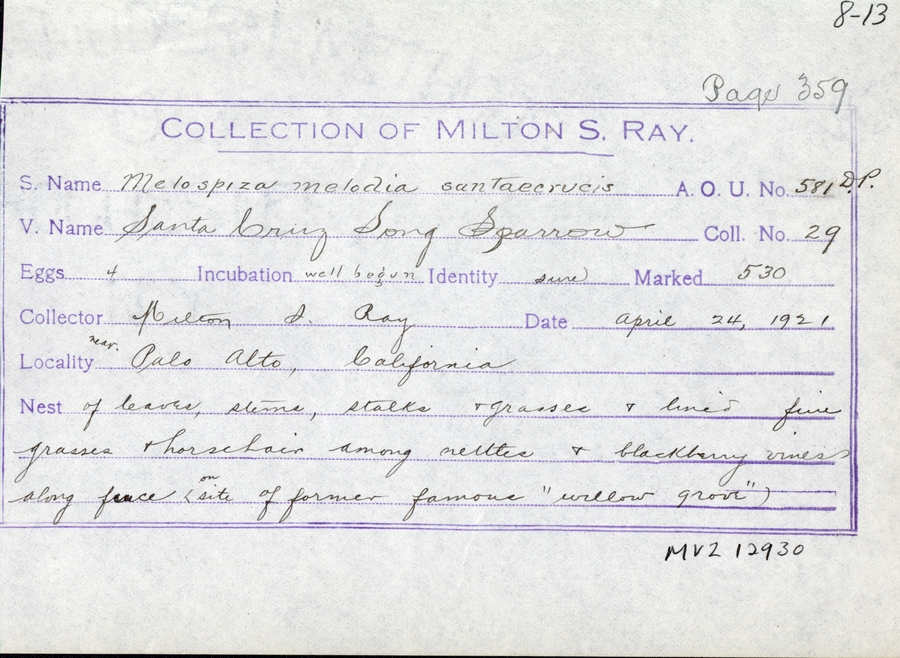 8-13
Page 359
COLLECTION OF MILTON S. RAY.
S. Name Melospiza melodia santaecrucis A. O. U. No. 581 D.P.
V. Name Santa Cruz Song Sparrow Coll. No. 29
Eggs 4 Incubation well begun Identity sure Marked 530
Collector Milton S. Ray Date April 24, 1921
Locality near. Palo Alto, California
Nest of leaves, stems, stalks & grasses & lined fine
grasses & horsehair among nettles & blackberry vines
along fence (on site of former famous "willow grove")
MVZ 12930